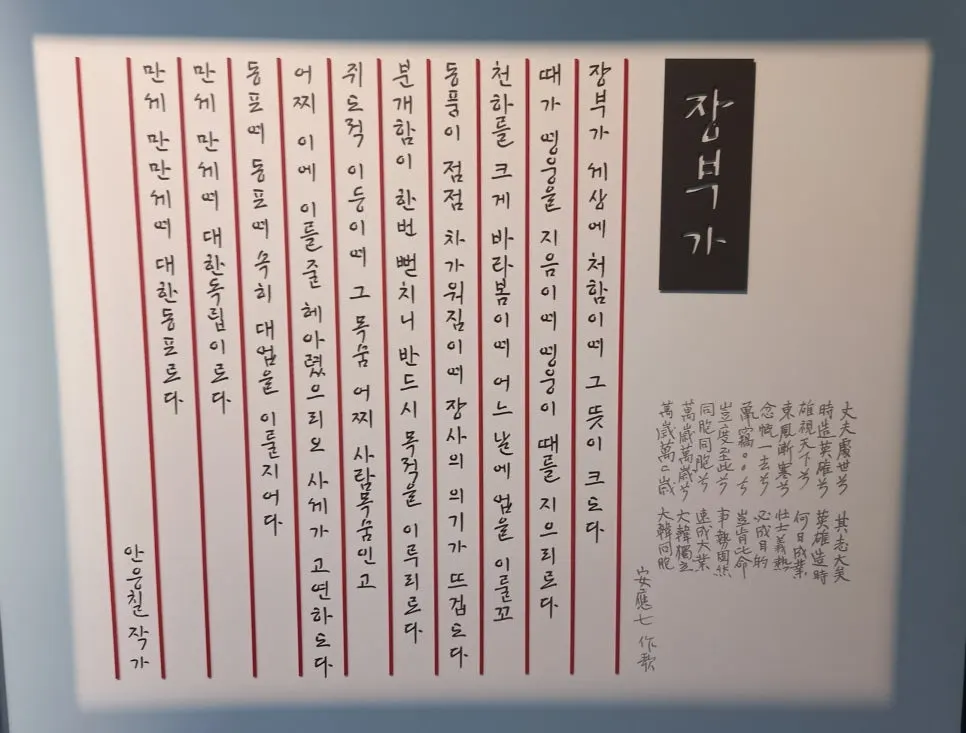 장부가
丈夫處世兮 其志大矣
時造英雄兮 英雄造時
雄視天下兮 何日成業
東風漸寒兮 壯士義熱
念慨一去兮 必成目的
鼠竊○○兮 豈肯比命
豈度至此兮 事勢固然
同胞同胞兮 速成大業
萬歲萬歲兮 大韓獨立
萬歲萬○歲 大韓同胞
安應七 作歌
장부가 세상에 처함이여 그 뜻이 크도다
때가 영웅을 지음이여 영웅이 때를 지으리로다
천하를 크게 바라봄이여 어느 날에 업을 이룰꼬
동풍이 점점 차가워짐이여 장사의 의기가 뜨겁도다
분개함이 한번 뻗치니 반드시 목적을 이루리로다
쥐도적 이등이여 그 목숨 어찌 사람목숨인고
어찌 이에 이를 줄 헤아렸으리오 사세가 고연하도다
동포여 동포여 속히 대업을 이룰지어다
만세 만세여 대한독립이로다
만세 만만세여 대한동포로다
안응칠 작가